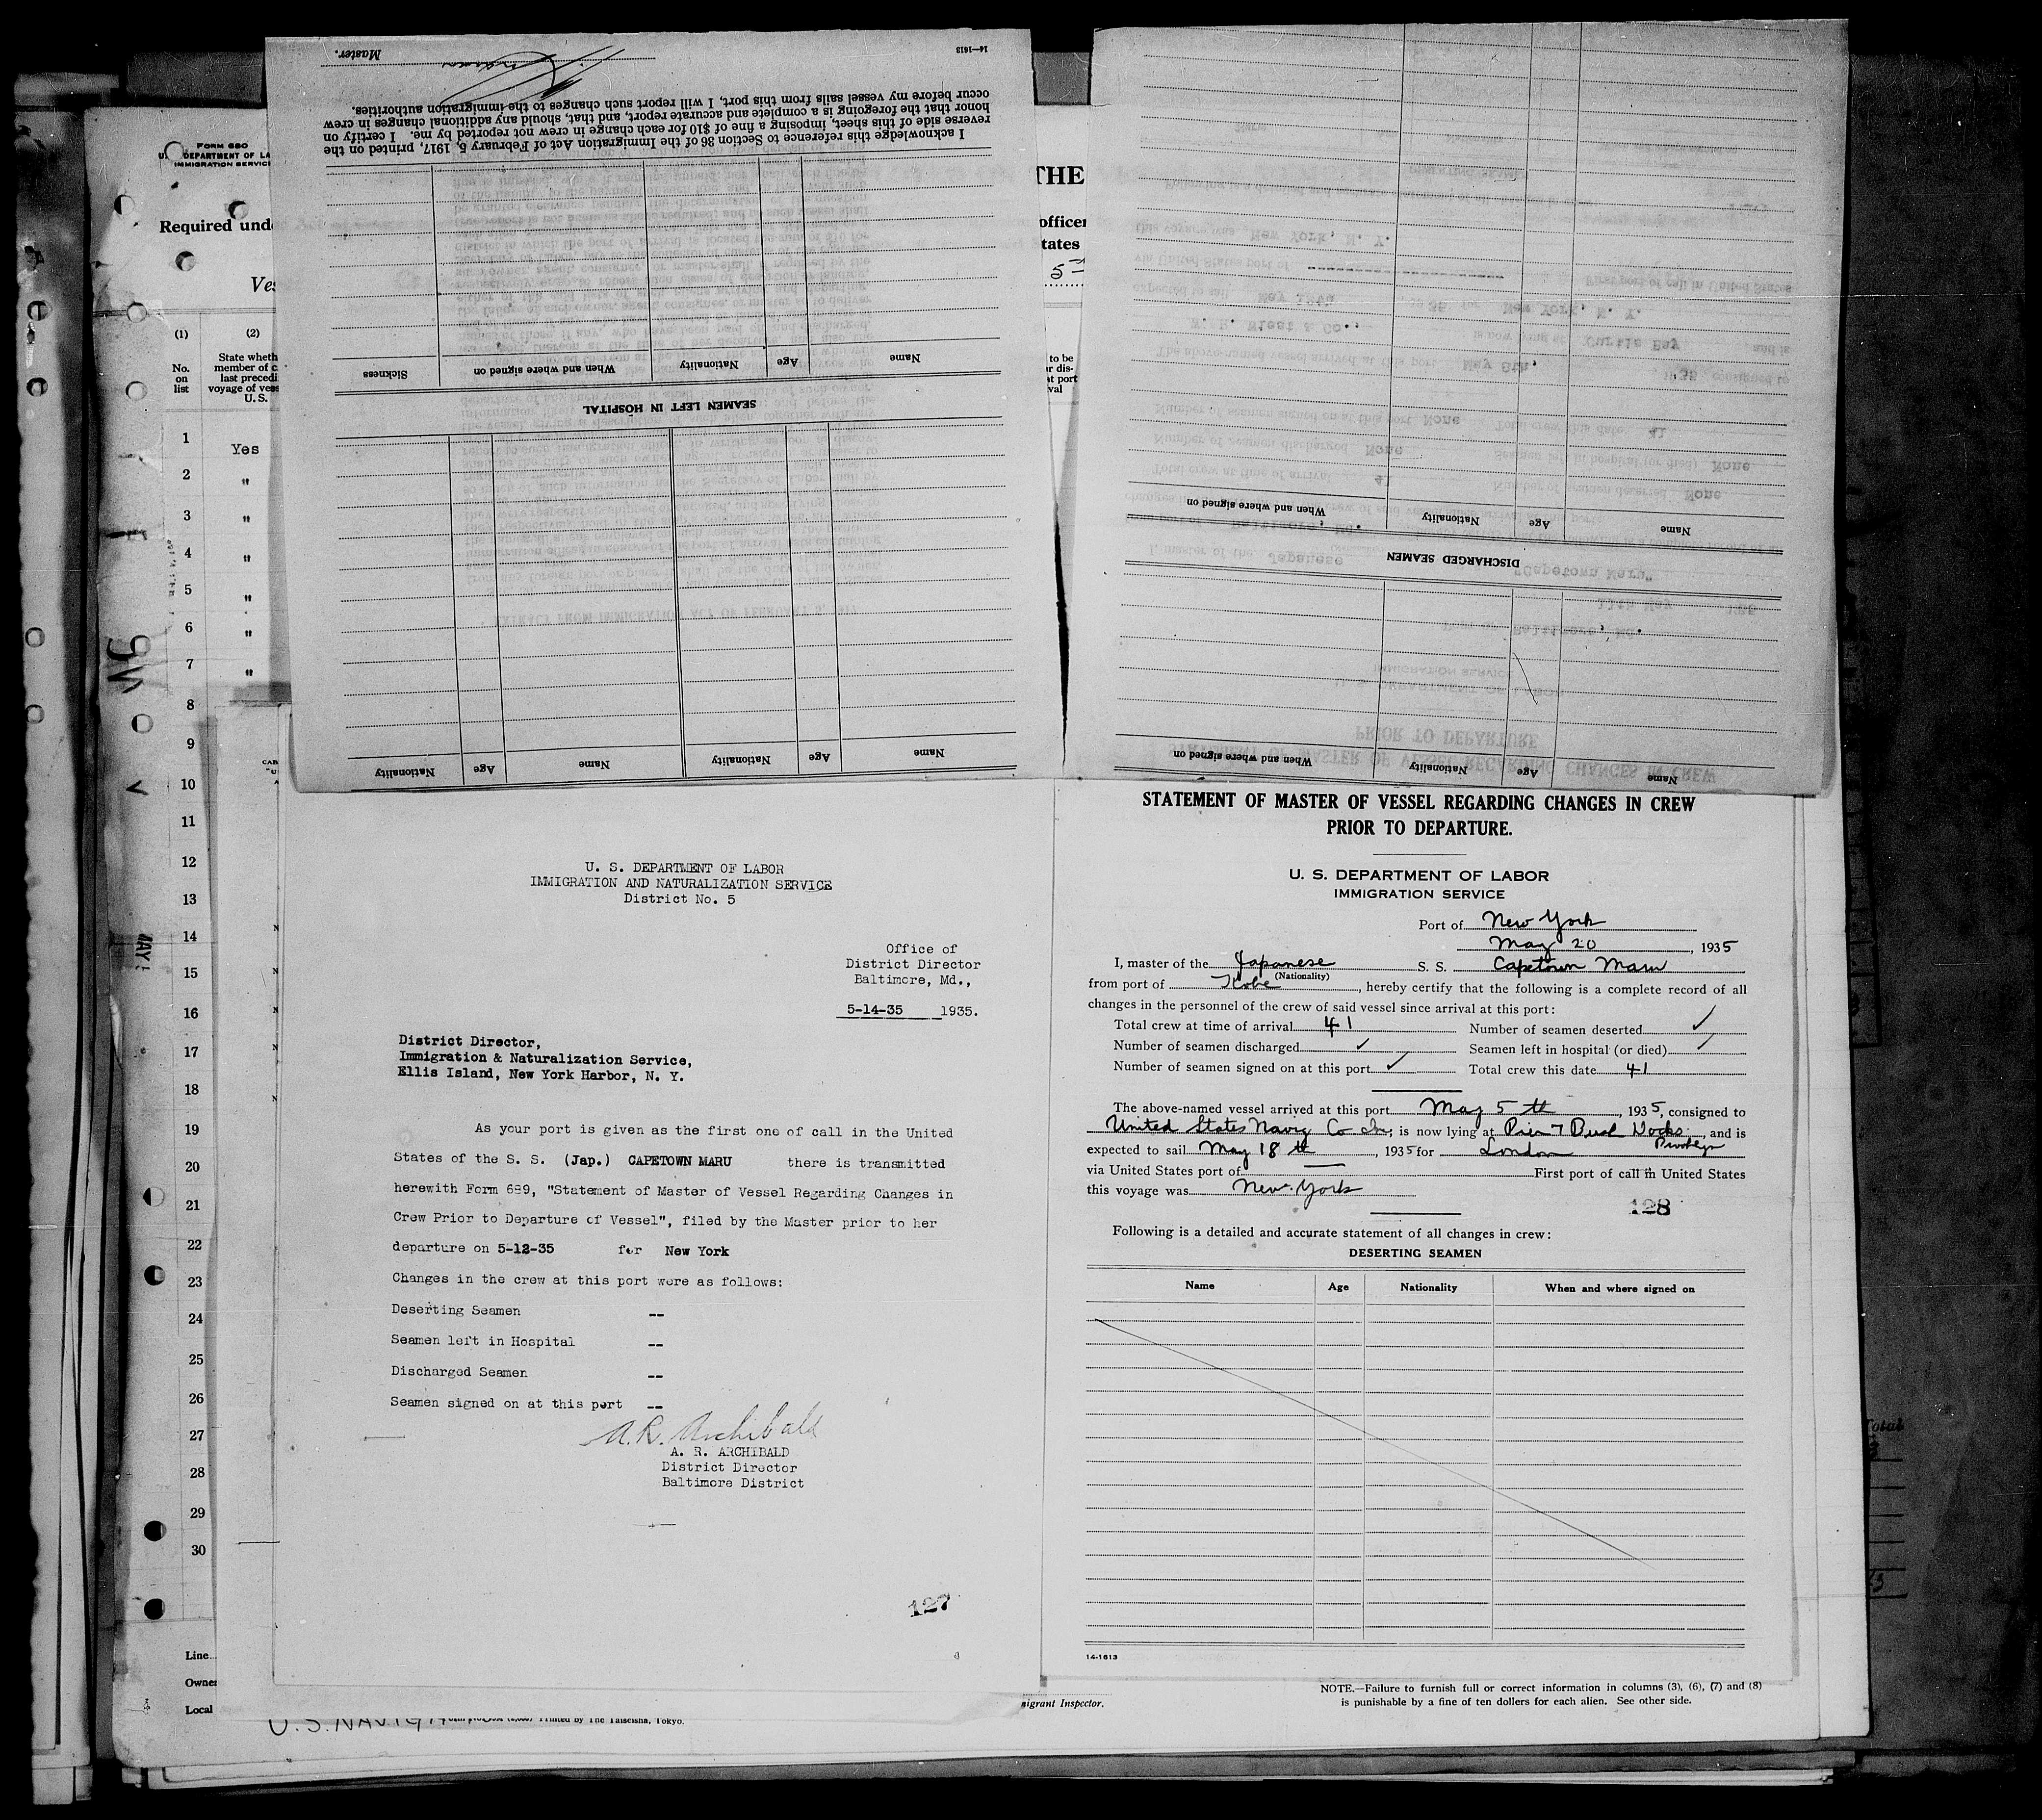 Master.
14—1613
I acknowledge this reference to Section 36 of the Immigration Act of February 5, 1917, printed on the
reverse side of this sheet, imposing a fine of $10 for each change in crew not reported by me. I certify on
honor that the foregoing is a complete and accurate report, and that, should any additional changes in crew
occur before my vessel sails from this port, I will report such changes to the immigration authorities.
Name Age Nationality When and where signed on Sickness
SEAMEN LEFT IN HOSPITAL
Name Age Nationality Name Age Nationality
Name Age Nationality When and where signed on
DISCHARGED SEAMEN
Name Age Nationality When and where signed on
FORM 680
U. S. DEPARTMENT OF LA
IMMIGRATION SERVICE
Required unde
Ves
THE
officer
tates
5
(1) (2)
No.
on
list
State wheth
member of c
last precedi
voyage of vess
U. S.
to be
or dis-
at port
val
1 Yes
2 "
3 "
4 "
5 "
6 "
7 "
8
9
10
11
12
13
14
15
16
17
18
19
20
21
22
23
24
25
26
27
28
29
30
Line
Owner
Local
U. S. DEPARTMENT OF LABOR
IMMIGRATION AND NATURALIZATION SERVICE
District No. 5
Office of
District Director
Baltimore, Md.,
5-14-35 1935.
District Director,
Immigration & Naturalization Service,
Ellis Island, New York Harbor, N. Y.
As your port is given as the first one of call in the United
States of the S. S. (Jap.) CAPETOWN MARU there is transmitted
herewith Form 689, "Statement of Master of Vessel Regarding Changes in
Crew Prior to Departure of Vessel", filed by the Master prior to her
departure on 5-12-35 for New York
Changes in the crew at this port were as follows:
Deserting Seamen --
Seamen left in Hospital --
Discharged Seamen --
Seamen signed on at this port --
A. R. Archibald
A. R. ARCHIBALD
District Director
Baltimore District
127
STATEMENT OF MASTER OF VESSEL REGARDING CHANGES IN CREW
PRIOR TO DEPARTURE.
U. S. DEPARTMENT OF LABOR
IMMIGRATION SERVICE
Port of New York
May 20, 1935
I, master of the Japanese S. S. Capetown Maru
(Nationality)
from port of Kobe, hereby certify that the following is a complete record of all
changes in the personnel of the crew of said vessel since arrival at this port:
Total crew at time of arrival 41 Number of seamen deserted ✓
Number of seamen discharged ✓ Seamen left in hospital (or died) ✓
Number of seamen signed on at this port ✓ Total crew this date 41
The above-named vessel arrived at this port May 5 th, 1935, consigned to
United States Navig Co Inc, is now lying at Pier 7 Bush Docks, and is
Brooklyn
expected to sail May 18 th, 1935 for London
via United States port of — First port of call in United States
this voyage was New York
128
Following is a detailed and accurate statement of all changes in crew:
DESERTING SEAMEN
Name Age Nationality When and where signed on
14-1613
NOTE.—Failure to furnish full or correct information in columns (3), (6), (7) and (8)
is punishable by a fine of ten dollars for each alien. See other side.
migrant Inspector.
U.S. NAVIG
Printed by The Taiseisha, Tokyo.
Total